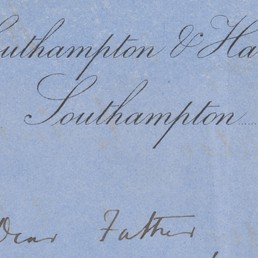 outhampton & Ha
Southampton
Dear Father